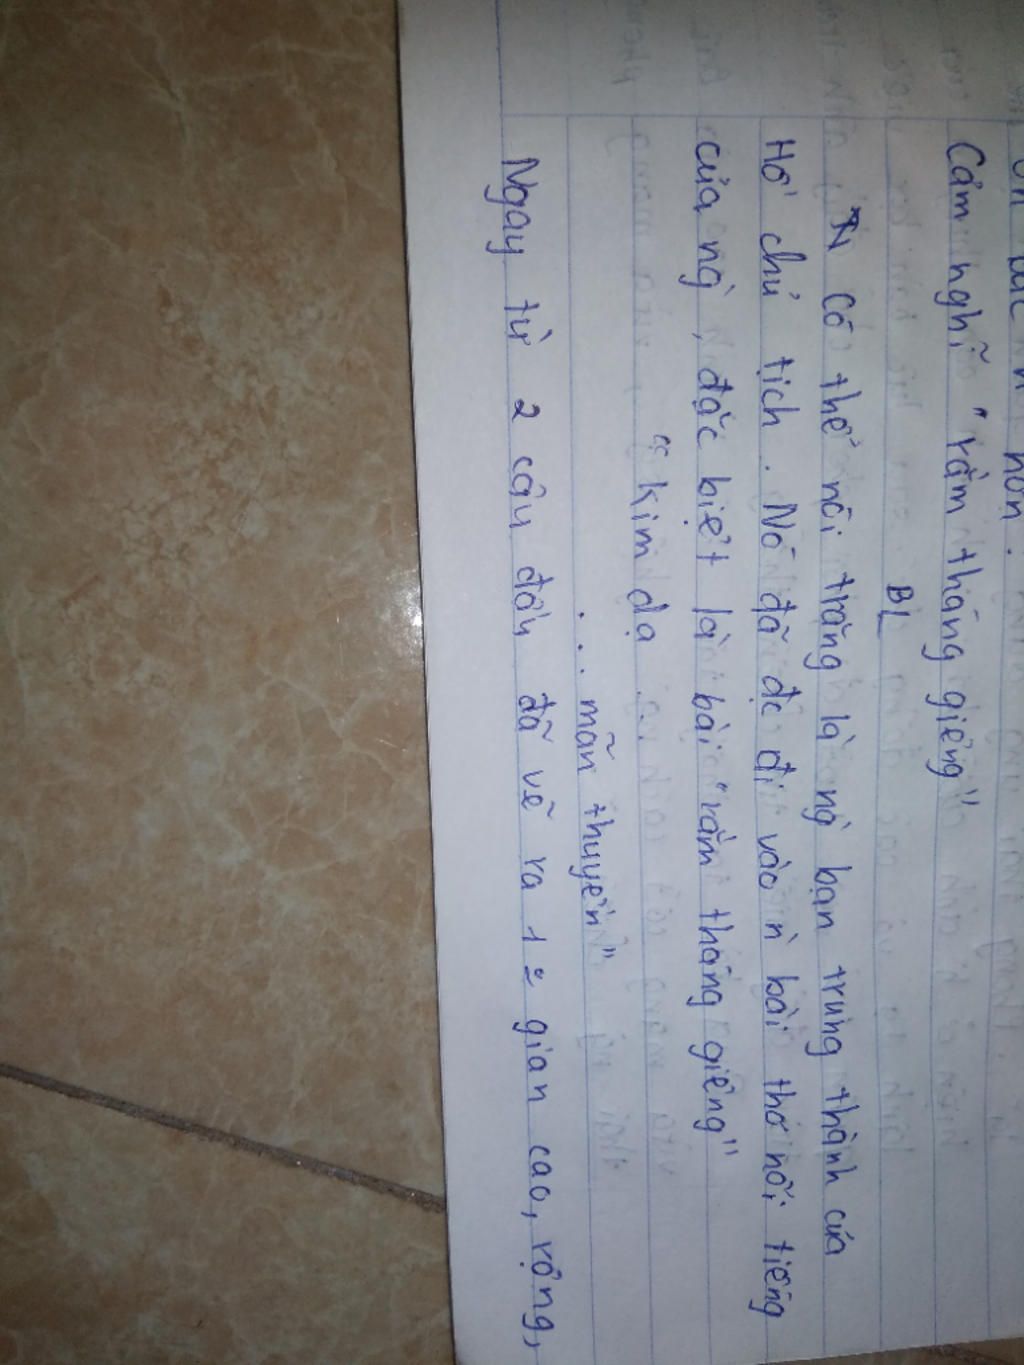 Cảm nghĩ "rằm tháng giêng"
BL
Có thể nói trăng là ng` bạn trung thành của
Hồ chủ tịch. Nó đã đc đi vào n` bài thơ nổi tiếng
của ng`, đặc biệt là bài "rằm tháng giêng"
"kim dạ ...
... mãn thuyền"
Ngay từ 2 câu đầu đã vẽ ra 1 gian cao, rộng,